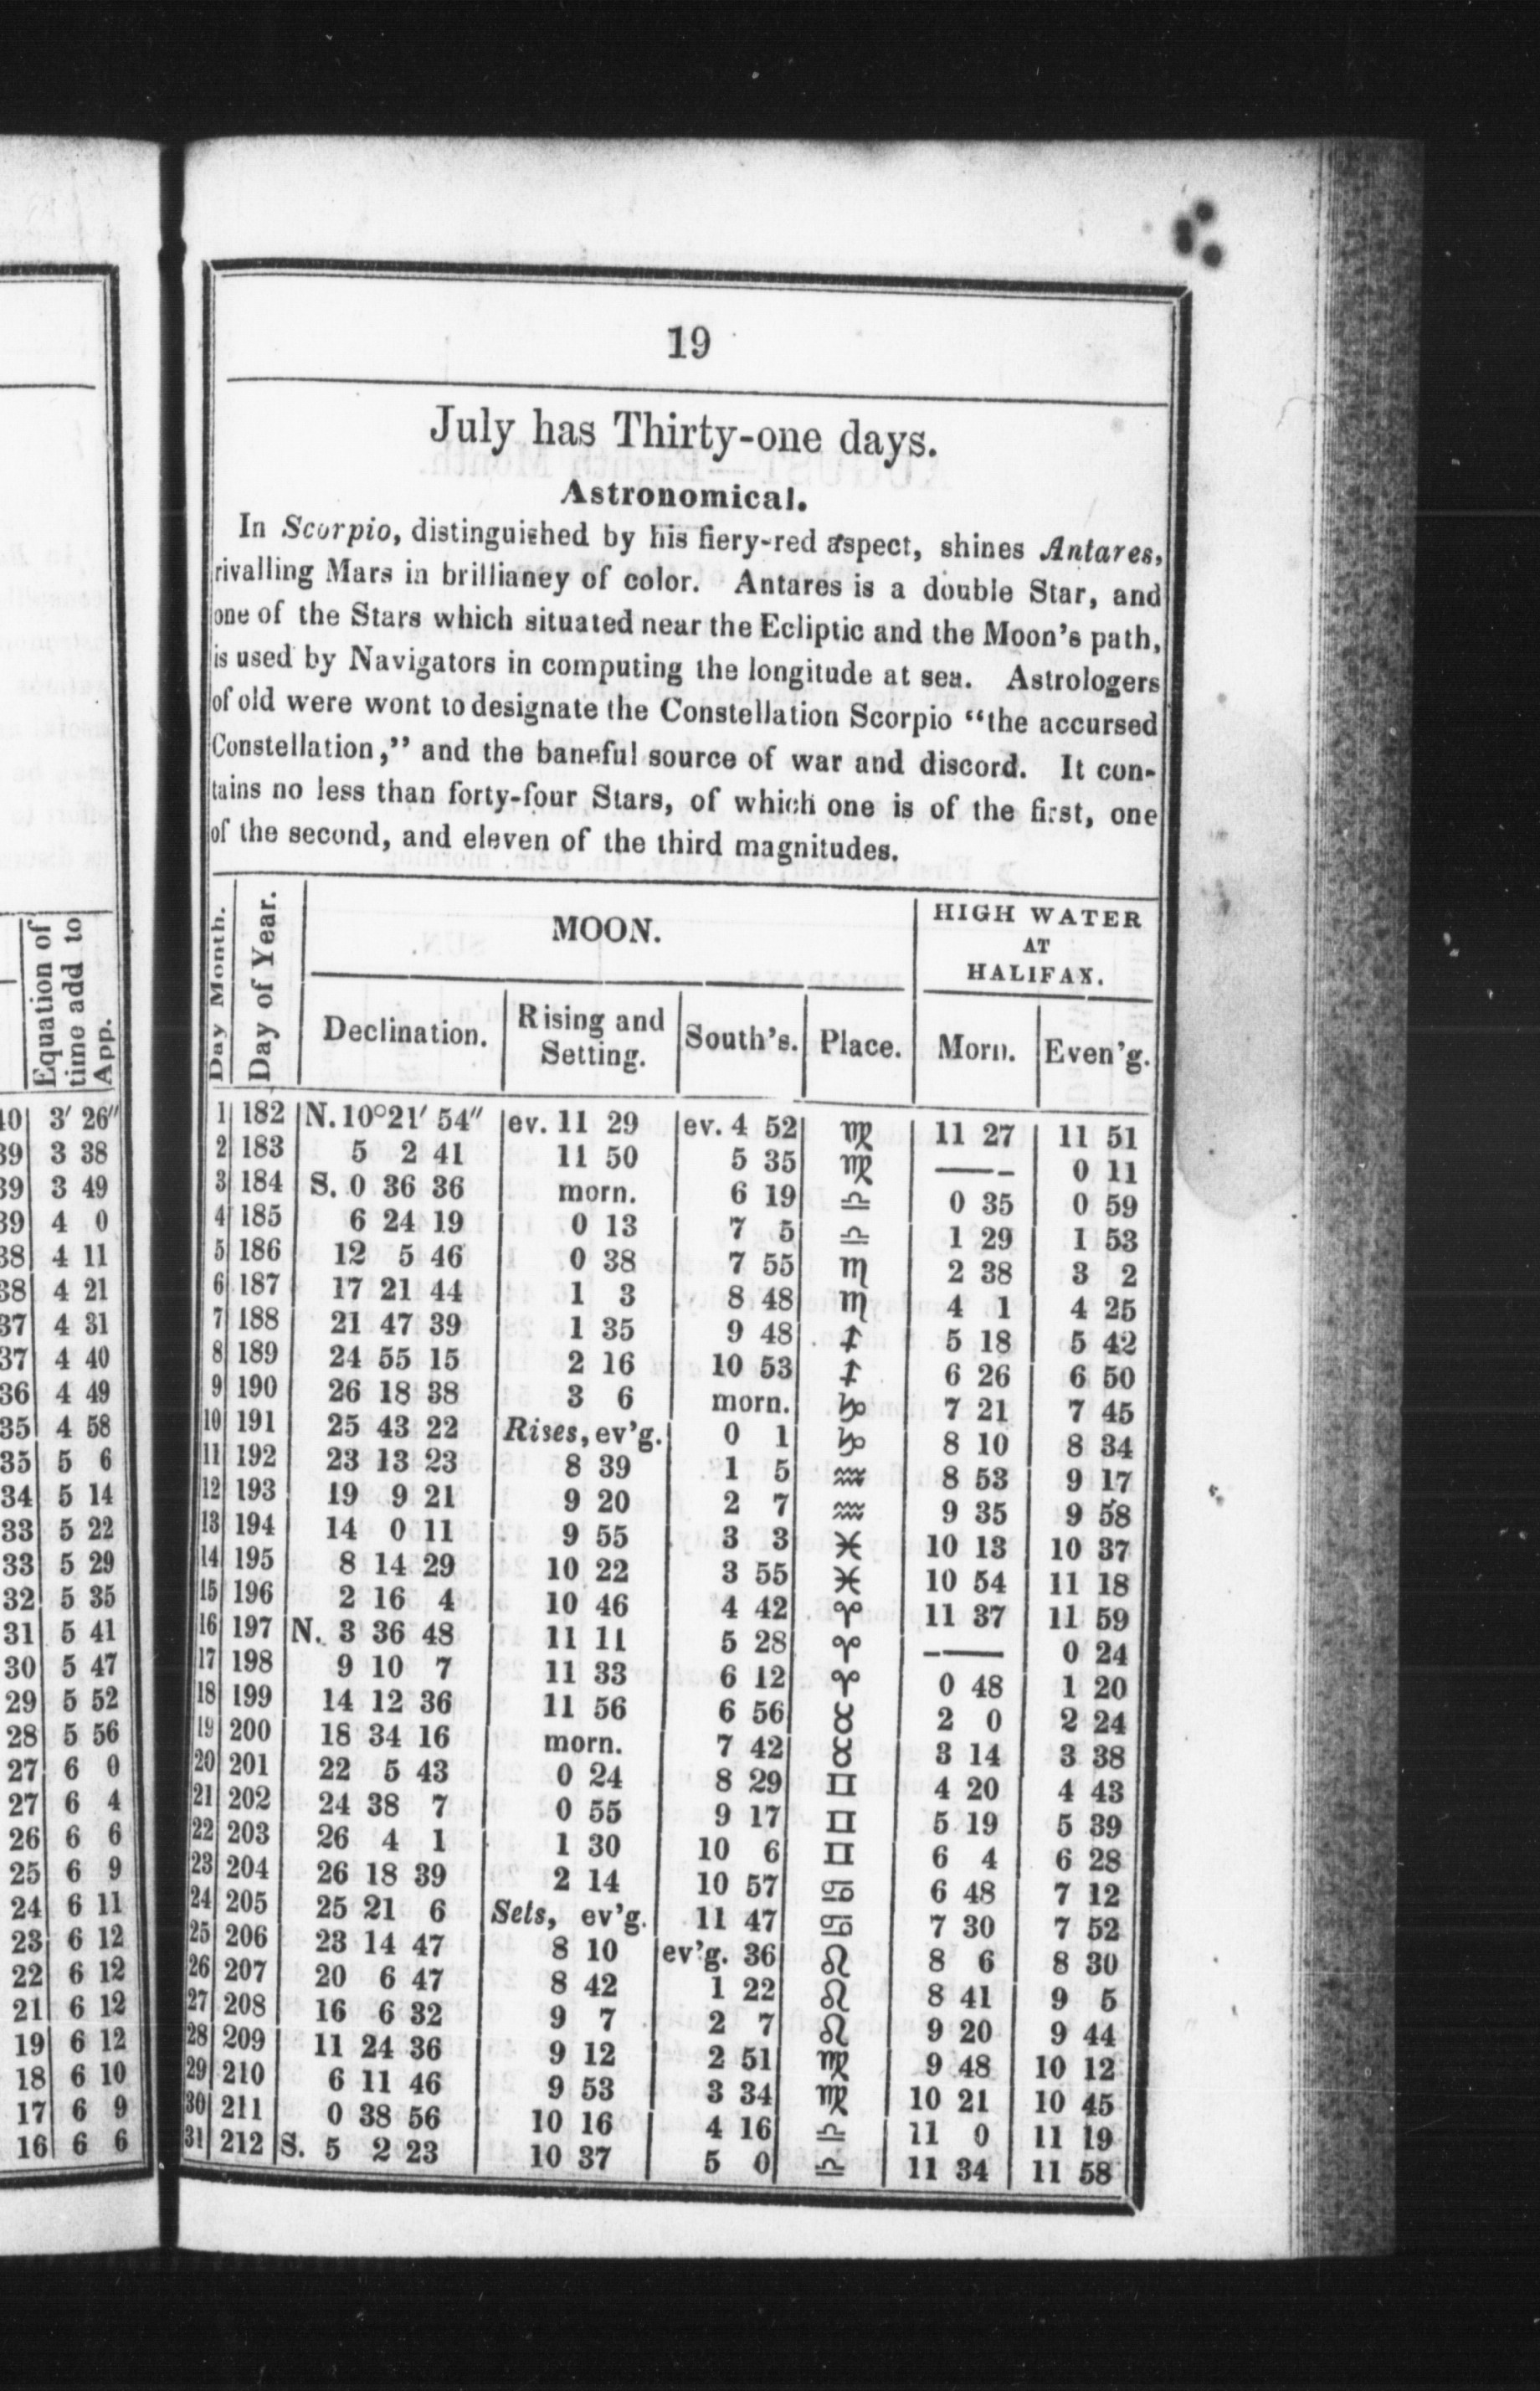 19
July has Thirty-one days.
Astronomical.
In Scorpio, distinguished by his fiery-red aspect, shines Antares,
rivalling Mars in brillianey of color. Antares is a double Star, and
one of the Stars which situated near the Ecliptic and the Moon's path,
is used by Navigators in computing the longitude at sea. Astrologers
of old were wont to designate the Constellation Scorpio “the accursed
Constellation,” and the baneful source of war and discord. It con-
tains no less than forty-four Stars, of which one is of the first, one
of the second, and eleven of the third magnitudes.
Day Month. Day of Year. MOON. HIGH WATER
AT
HALIFAX.
Declination. Rising and Setting. South's. Place. Morn. Even'g.
1 182 N. 10° 21′ 54″ ev. 11 29 ev. 4 52 ♍ 11 27 11 51
2 183 5 2 41 11 50 5 35 ♍ —— 0 11
3 184 S. 0 36 36 morn. 6 19 ♎ 0 35 0 59
4 185 6 24 19 0 13 7 5 ♎ 1 29 1 53
5 186 12 5 46 0 38 7 55 ♏ 2 38 3 2
6 187 17 21 44 1 3 8 48 ♏ 4 1 4 25
7 188 21 47 39 1 35 9 48 ♐ 5 18 5 42
8 189 24 55 15 2 16 10 53 ♐ 6 26 6 50
9 190 26 18 38 3 6 morn. ♑ 7 21 7 45
10 191 25 43 22 Rises, ev'g. 0 1 ♑ 8 10 8 34
11 192 23 13 23 8 39 1 5 ♒ 8 53 9 17
12 193 19 9 21 9 20 2 7 ♒ 9 35 9 58
13 194 14 0 11 9 55 3 3 ♓ 10 13 10 37
14 195 8 14 29 10 22 3 55 ♓ 10 54 11 18
15 196 2 16 4 10 46 4 42 ♈ 11 37 11 59
16 197 N. 3 36 48 11 11 5 28 ♈ —— 0 24
17 198 9 10 7 11 33 6 12 ♈ 0 48 1 20
18 199 14 12 36 11 56 6 56 ♉ 2 0 2 24
19 200 18 34 16 morn. 7 42 ♉ 3 14 3 38
20 201 22 5 43 0 24 8 29 ♊ 4 20 4 43
21 202 24 38 7 0 55 9 17 ♊ 5 19 5 39
22 203 26 4 1 1 30 10 6 ♊ 6 4 6 28
23 204 26 18 39 2 14 10 57 ♋ 6 48 7 12
24 205 25 21 6 Sets, ev'g. 11 47 ♋ 7 30 7 52
25 206 23 14 47 8 10 ev'g. 36 ♌ 8 6 8 30
26 207 20 6 47 8 42 1 22 ♌ 8 41 9 5
27 208 16 6 32 9 7 2 7 ♌ 9 20 9 44
28 209 11 24 36 9 12 2 51 ♍ 9 48 10 12
29 210 6 11 46 9 53 3 34 ♍ 10 21 10 45
30 211 0 38 56 10 16 4 16 ♎ 11 0 11 19
31 212 S. 5 2 23 10 37 5 0 ♎ 11 34 11 58
Equation of
time add to
App.
40 3′ 26″
39 3 38
39 3 49
39 4 0
38 4 11
38 4 21
37 4 31
37 4 40
36 4 49
35 4 58
35 5 6
34 5 14
33 5 22
33 5 29
32 5 35
31 5 41
30 5 47
29 5 52
28 5 56
27 6 0
27 6 4
26 6 6
25 6 9
24 6 11
23 6 12
22 6 12
21 6 12
19 6 12
18 6 10
17 6 9
16 6 6